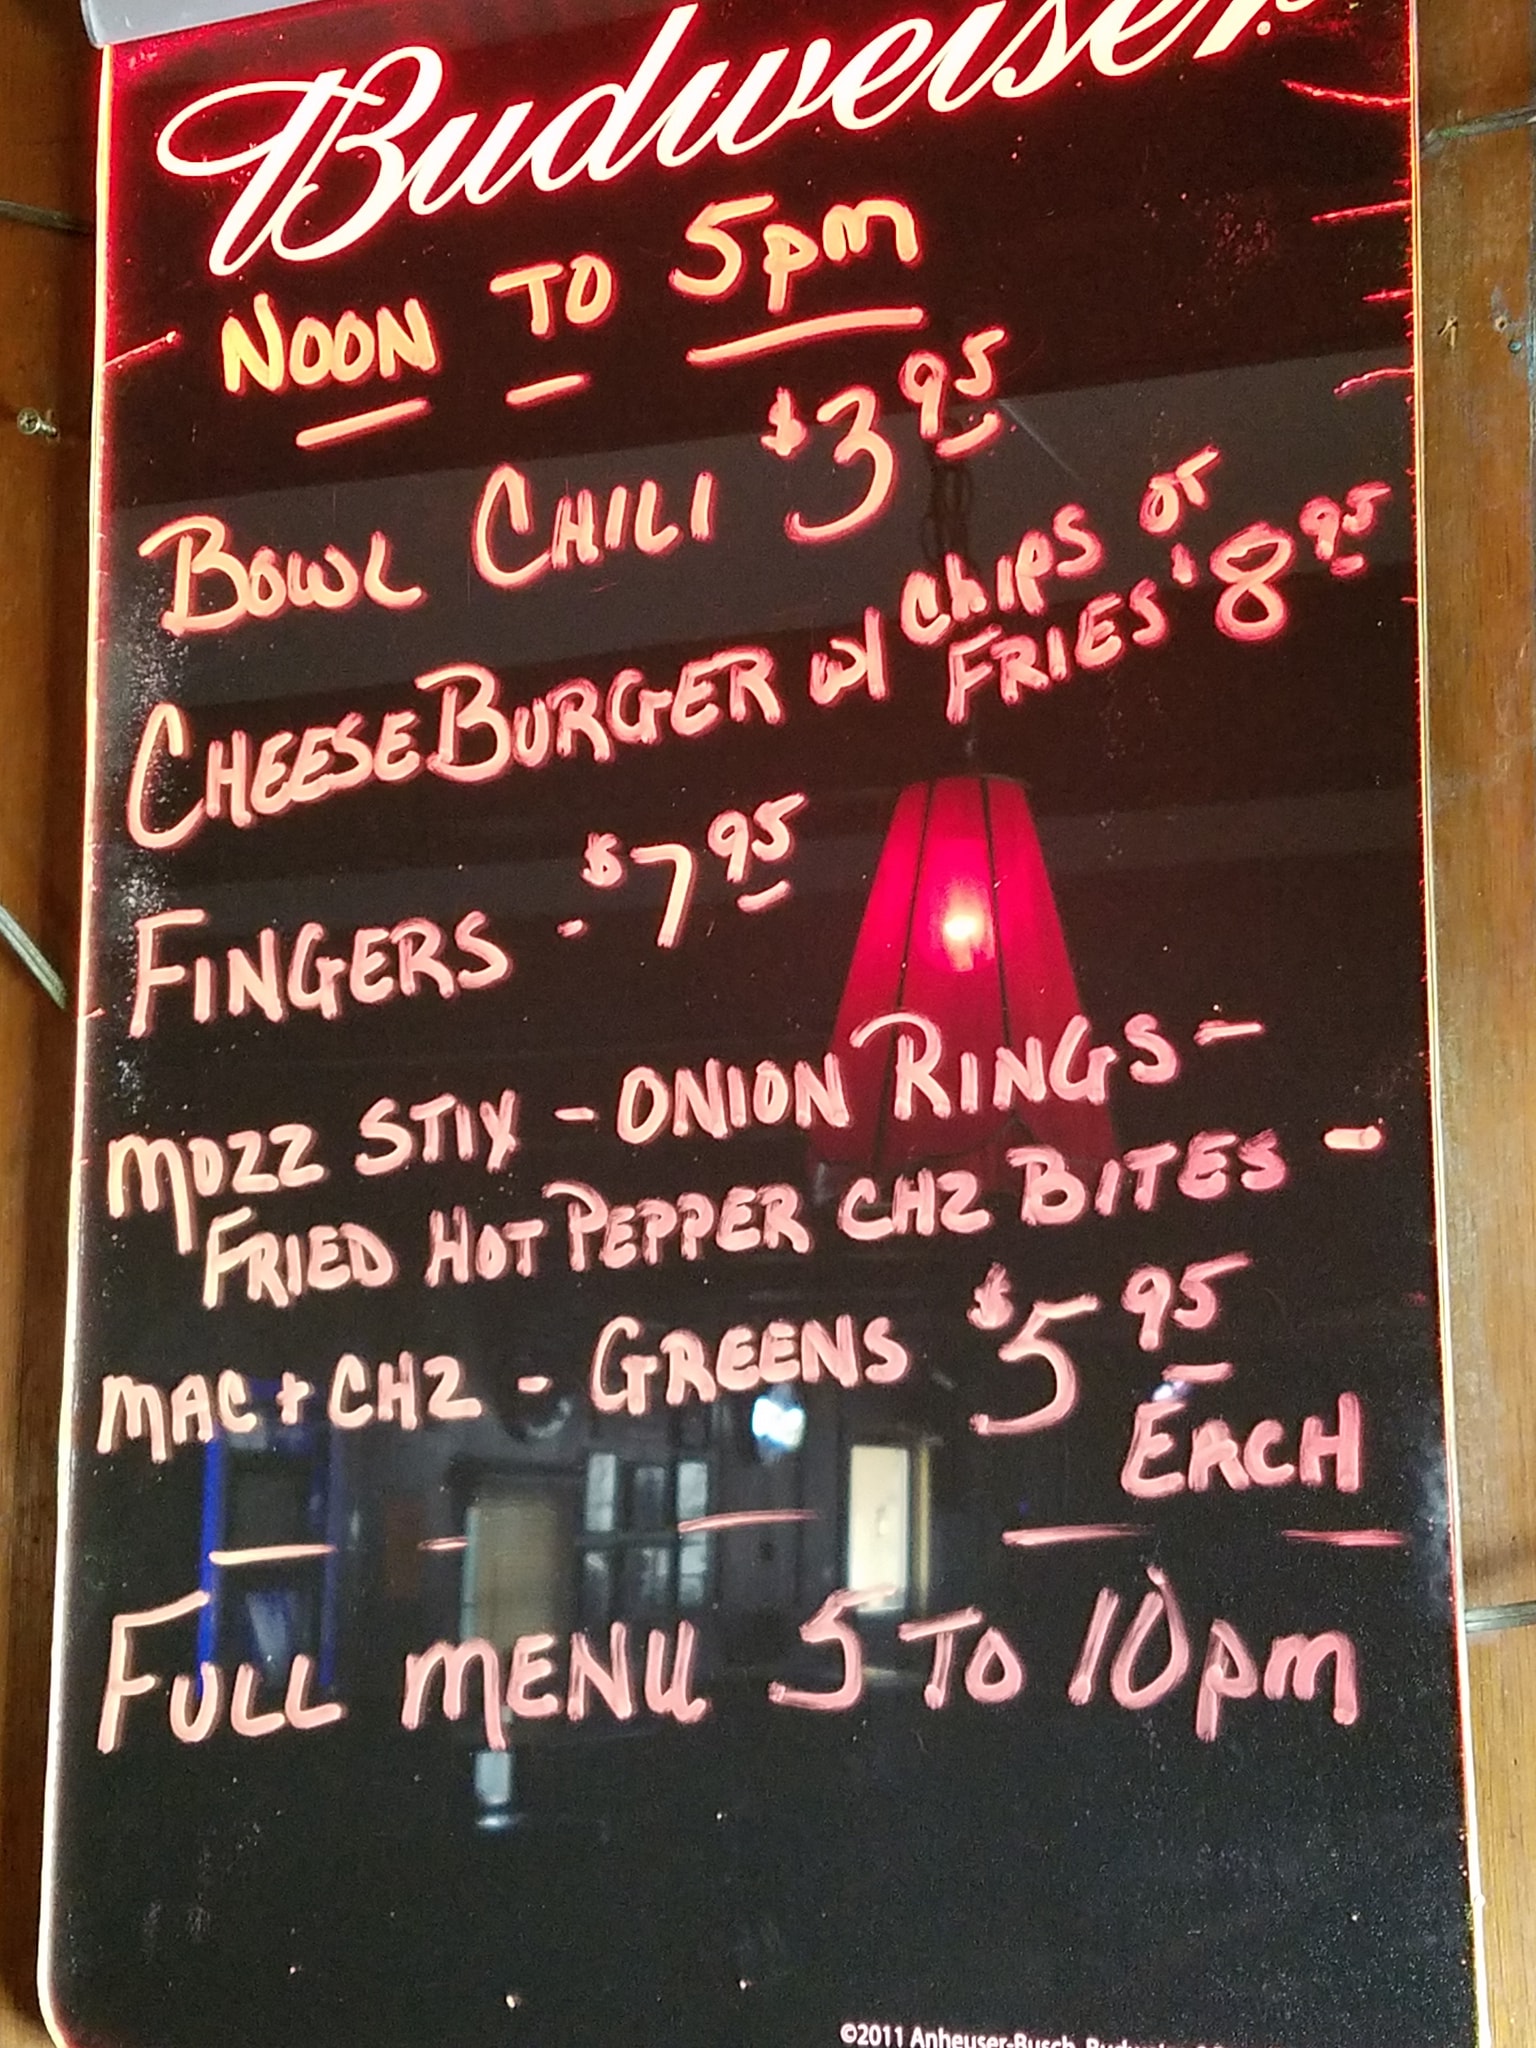 Budweiser
NOON TO 5pm
BOWL CHILI $3.95
CHEESEBURGER w/ CHIPS or
FRIES $8.95
FINGERS - $7.95
MOZZ STIX - ONION RINGS -
FRIED HOT PEPPER CHZ BITES -
MAC + CHZ - GREENS $5.95
EACH
FULL MENU 5 TO 10pm
©2011 Anheuser-Busch,